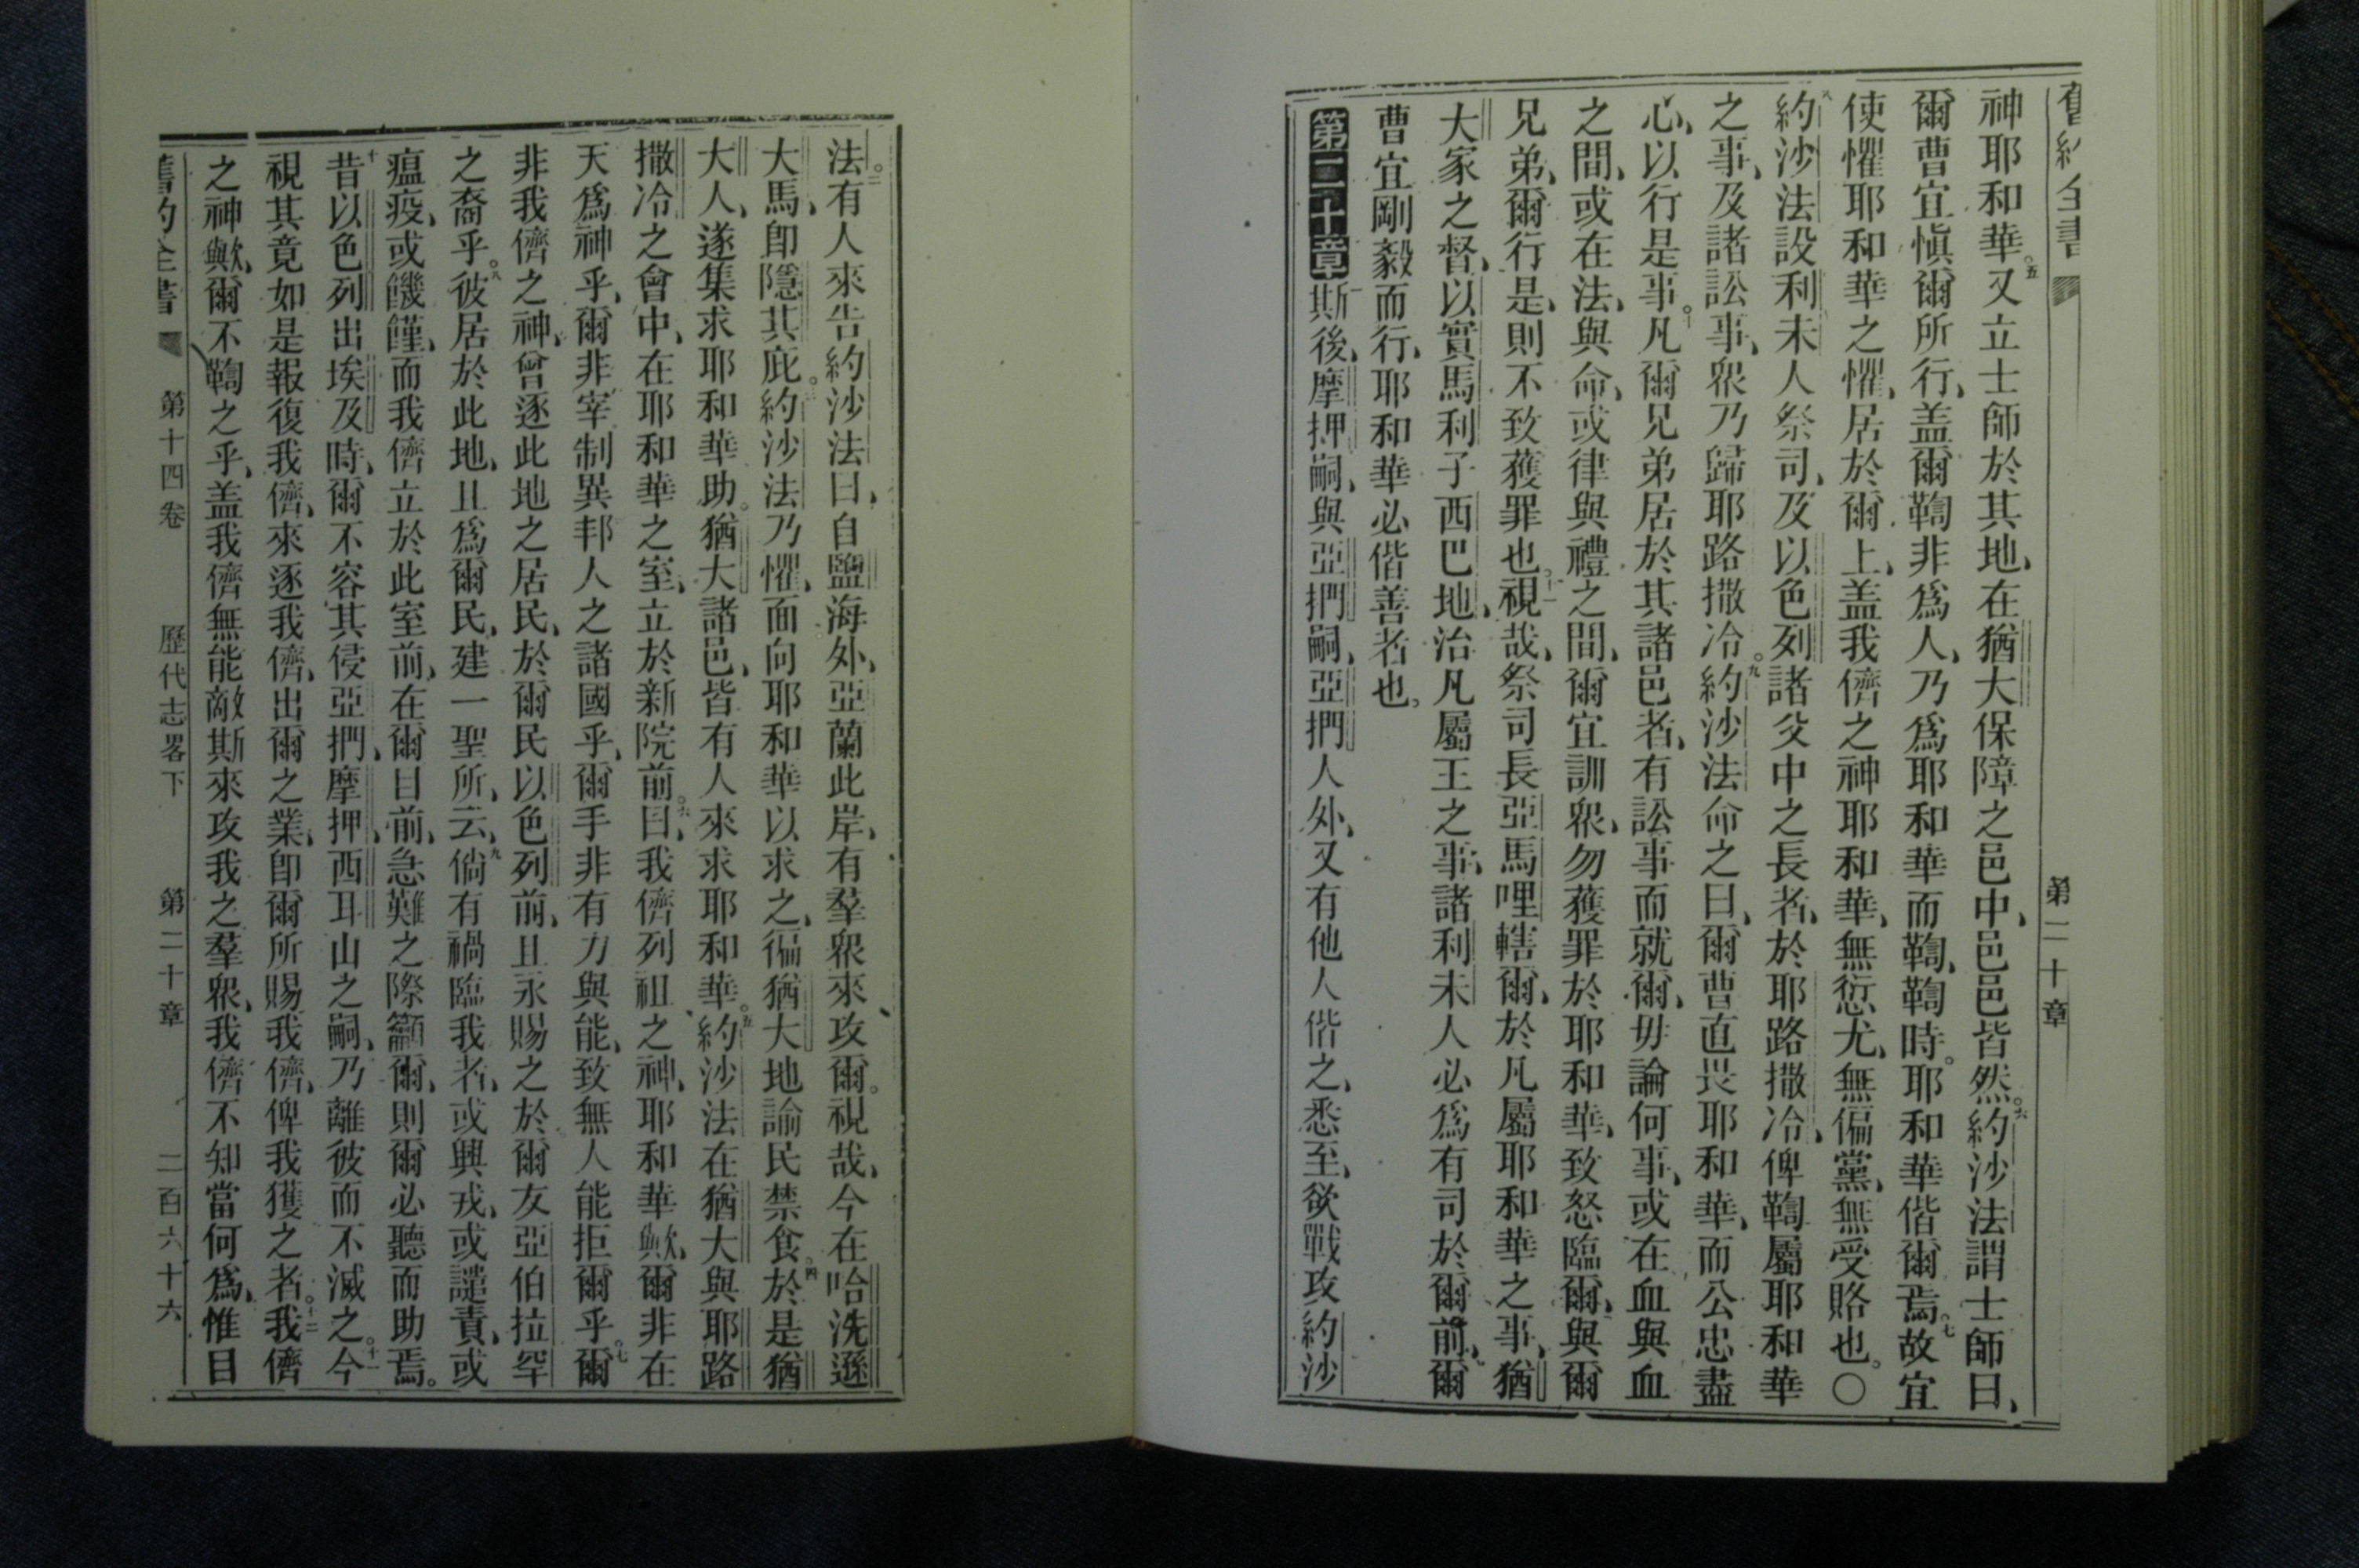 舊約全書
第二十章
神耶和華。五又立士師於其地、在猶大保障之邑中、邑邑皆然。六約沙法謂士師曰、
爾曹宜愼爾所行、盖爾鞫非爲人、乃爲耶和華而鞫、鞫時。耶和華偕爾焉。七故宜
使懼耶和華之懼、居於爾上、盖我儕之神耶和華、無愆尤、無偏黨、無受賂也。〇
八約沙法設利未人祭司、及以色列諸父中之長者、於耶路撒冷、俾鞫屬耶和華
之事、及諸訟事、衆乃歸耶路撒冷。九約沙法命之曰、爾曹直畏耶和華、而公忠盡
心、以行是事。十凡爾兄弟居於其諸邑者、有訟事而就爾、毋論何事、或在血與血
之間、或在法、與命、或律與禮之間、爾宜訓衆、勿獲罪於耶和華、致怒臨爾、與爾
兄弟、爾行是、則不致獲罪也。十一視哉、祭司長亞馬哩轄爾、於凡屬耶和華之事、猶
大家之督、以實馬利子西巴地、治凡屬王之事、諸利未人必爲有司於爾前、爾
曹宜剛毅而行、耶和華必偕善者也。
第二十章 一斯後、摩押嗣、與亞捫嗣、亞捫人外、又有他人偕之、悉至、欲戰攻約沙
法。二有人來告約沙法曰、自鹽海外、亞蘭此岸、有羣衆來攻爾。視哉、今在哈洗遜
大馬、卽隱其庇。三約沙法乃懼、面向耶和華以求之、徧猶大地諭民禁食。四於是猶
大人、遂集求耶和華助。猶大諸邑、皆有人來求耶和華。五約沙法在猶大與耶路
撒冷之會中、在耶和華之室、立於新院前。六曰、我儕列祖之神、耶和華歟、爾非在
天爲神乎、爾非宰制異邦人之諸國乎、爾手非有力與能、致無人能拒爾乎。七爾
非我儕之神、曾逐此地之居民、於爾民以色列前、且永賜之於爾友亞伯拉罕
之裔乎。八彼居於此地、且爲爾民、建一聖所、云、九倘有禍臨我者、或興戎、或譴責、或
瘟疫、或饑饉、而我儕立於此室前、在爾目前、急難之際籲爾、則爾必聽而助焉。
十昔以色列出埃及時、爾不容其侵亞捫、摩押、西耳山之嗣、乃離彼而不滅之。十一今
視其竟如是報復我儕、來逐我儕、出爾之業、卽爾所賜我儕、俾我獲之者。十二我儕
之神歟、爾不鞫之乎、盖我儕無能敵斯來攻我之羣衆、我儕不知當何爲、惟目
舊約全書 第十四卷 歷代志畧下 第二十章 二百六十六